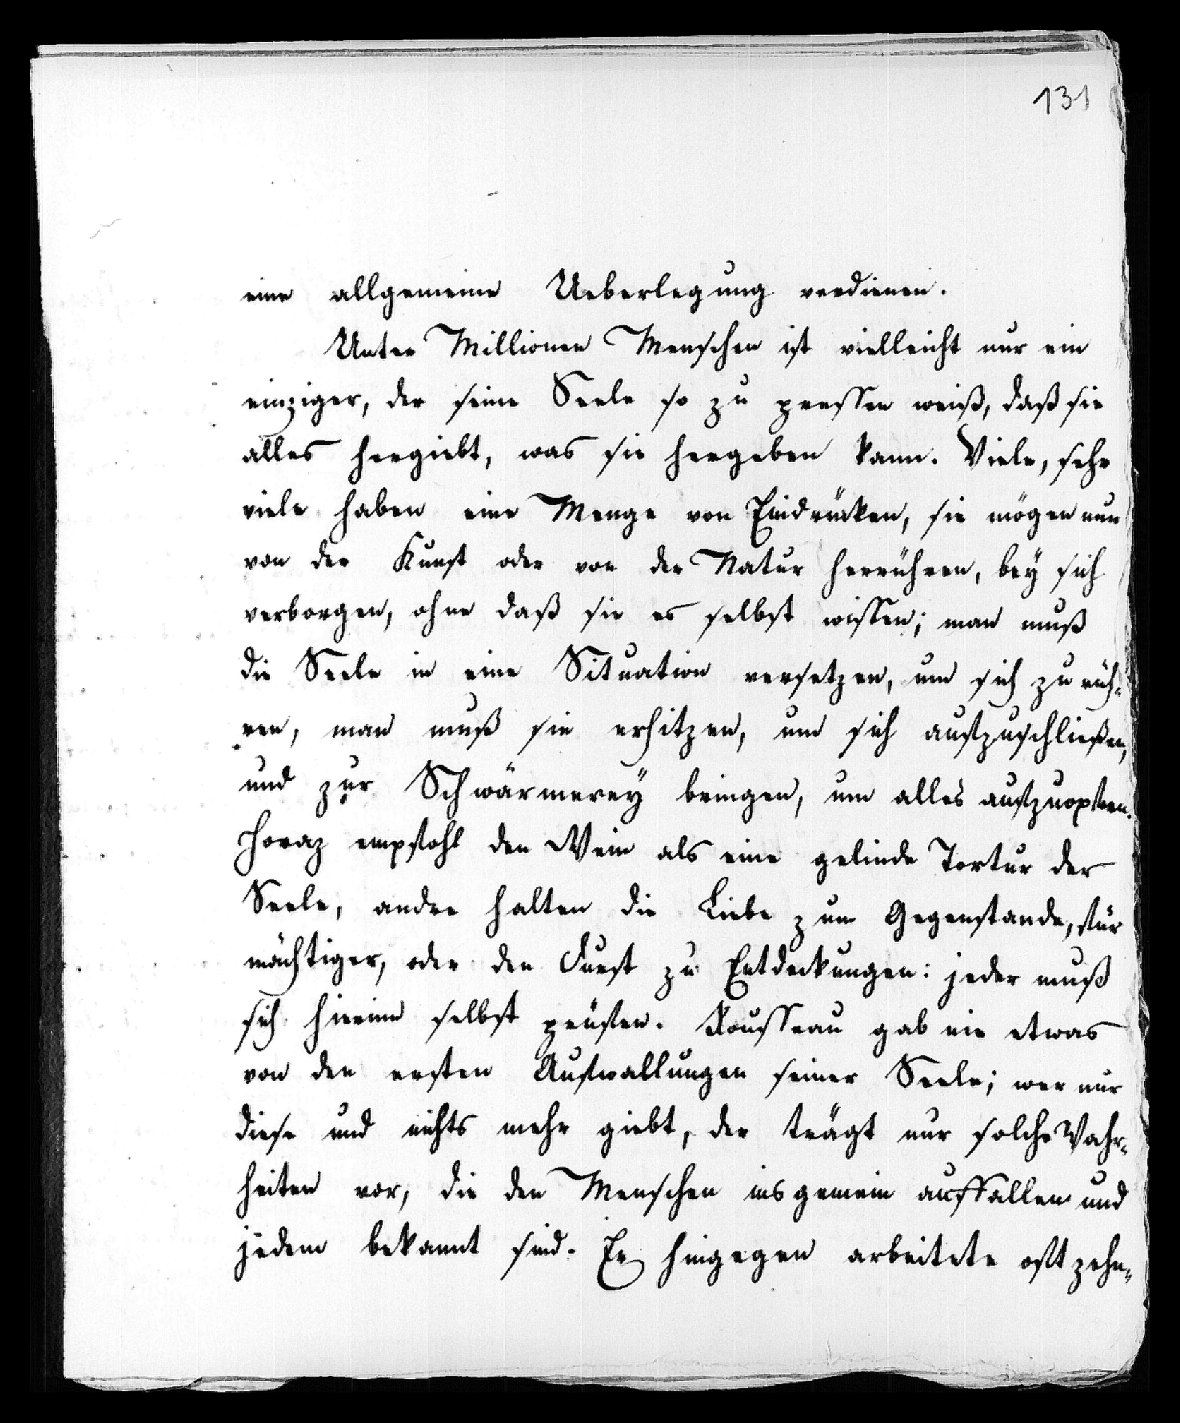 131
eine allgemeine Ueberlegung verdienen.
Unter Millionen Menschen ist vielleicht nur ein
einziger, der seine Seele so zu pressen weiß, daß sie
alles hergiebt, was sie hergeben kann. Viele, sehr
viele haben eine Menge von Eindrücken, sie mögen nun
von der Kunst oder von der Natur herrühren, bey sich
verborgen, ohne daß sie es selbst wissen; man muß
die Seele in eine Situation versetzen, um sich zu rüh-
ren, man muß sie erhitzen, um sich aufzuschließen,
und zur Schwärmerey bringen, um alles aufzuopfern.
Horaz empfohl den Wein als eine gelinde Tortur der
Seele, andre halten die Liebe zum Gegenstande, für
mächtiger, oder den Durst zu Entdeckungen: jeder muß
sich hierinn selbst prüfen. Rousseau gab nie etwas
von den ersten Aufwallungen seiner Seele; wer nur
diese und nichts mehr giebt, der trägt nur solche Wahr-
heiten vor, die den Menschen insgemein auffallen und
jedem bekannt sind. Er hingegen arbeitete oft zehn-